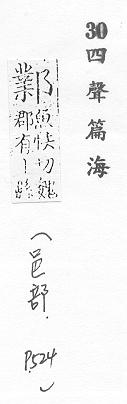 30 四聲篇海
鄴
魚怯切魏
郡有丨縣
(邑部. P.524)